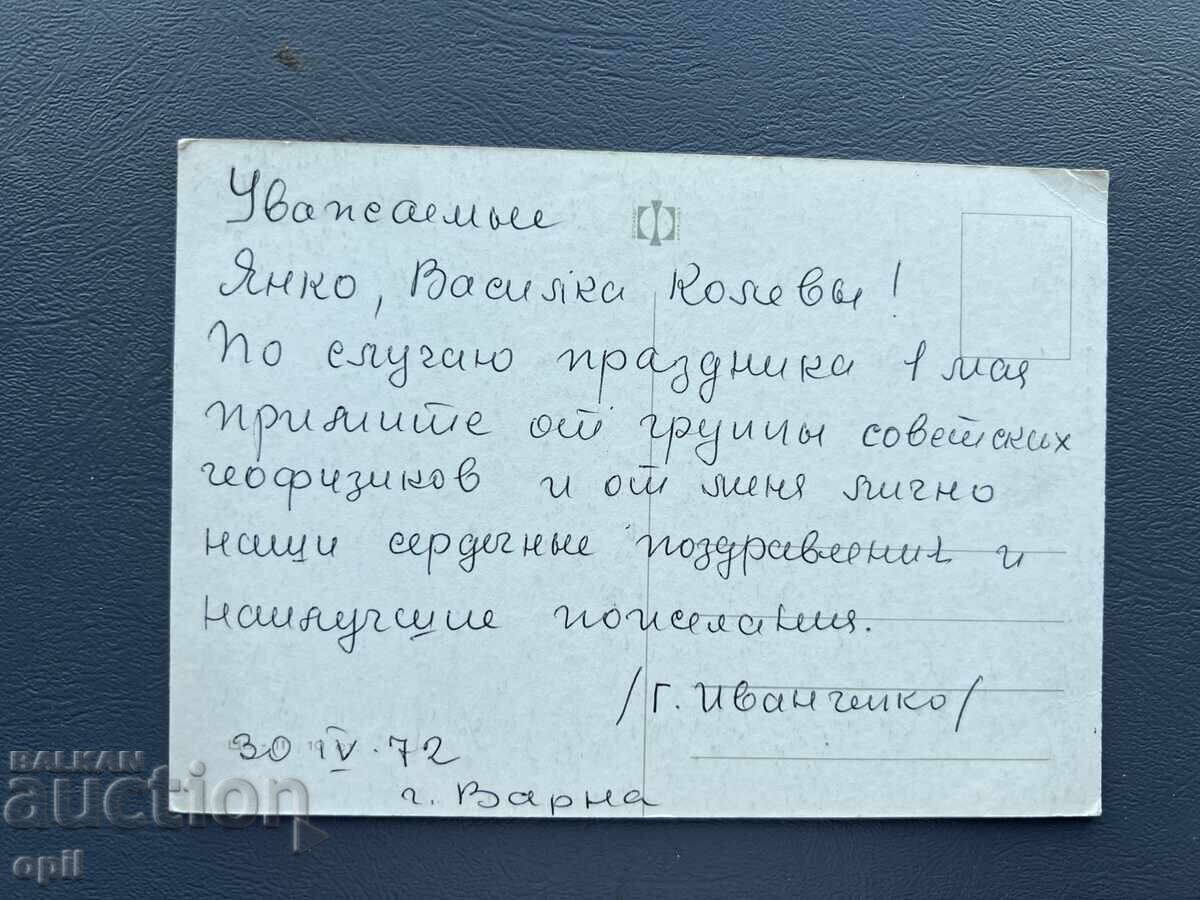 Уважаемые
Янко, Василка Колевы!
По случаю праздника 1 мая
примите от группы советских
геофизиков и от меня лично
наши сердечные поздравления и
наилучшие пожелания.
/Г. Иванченко/
30 IV. 72
г. Варна
BALKAN
auction
opil